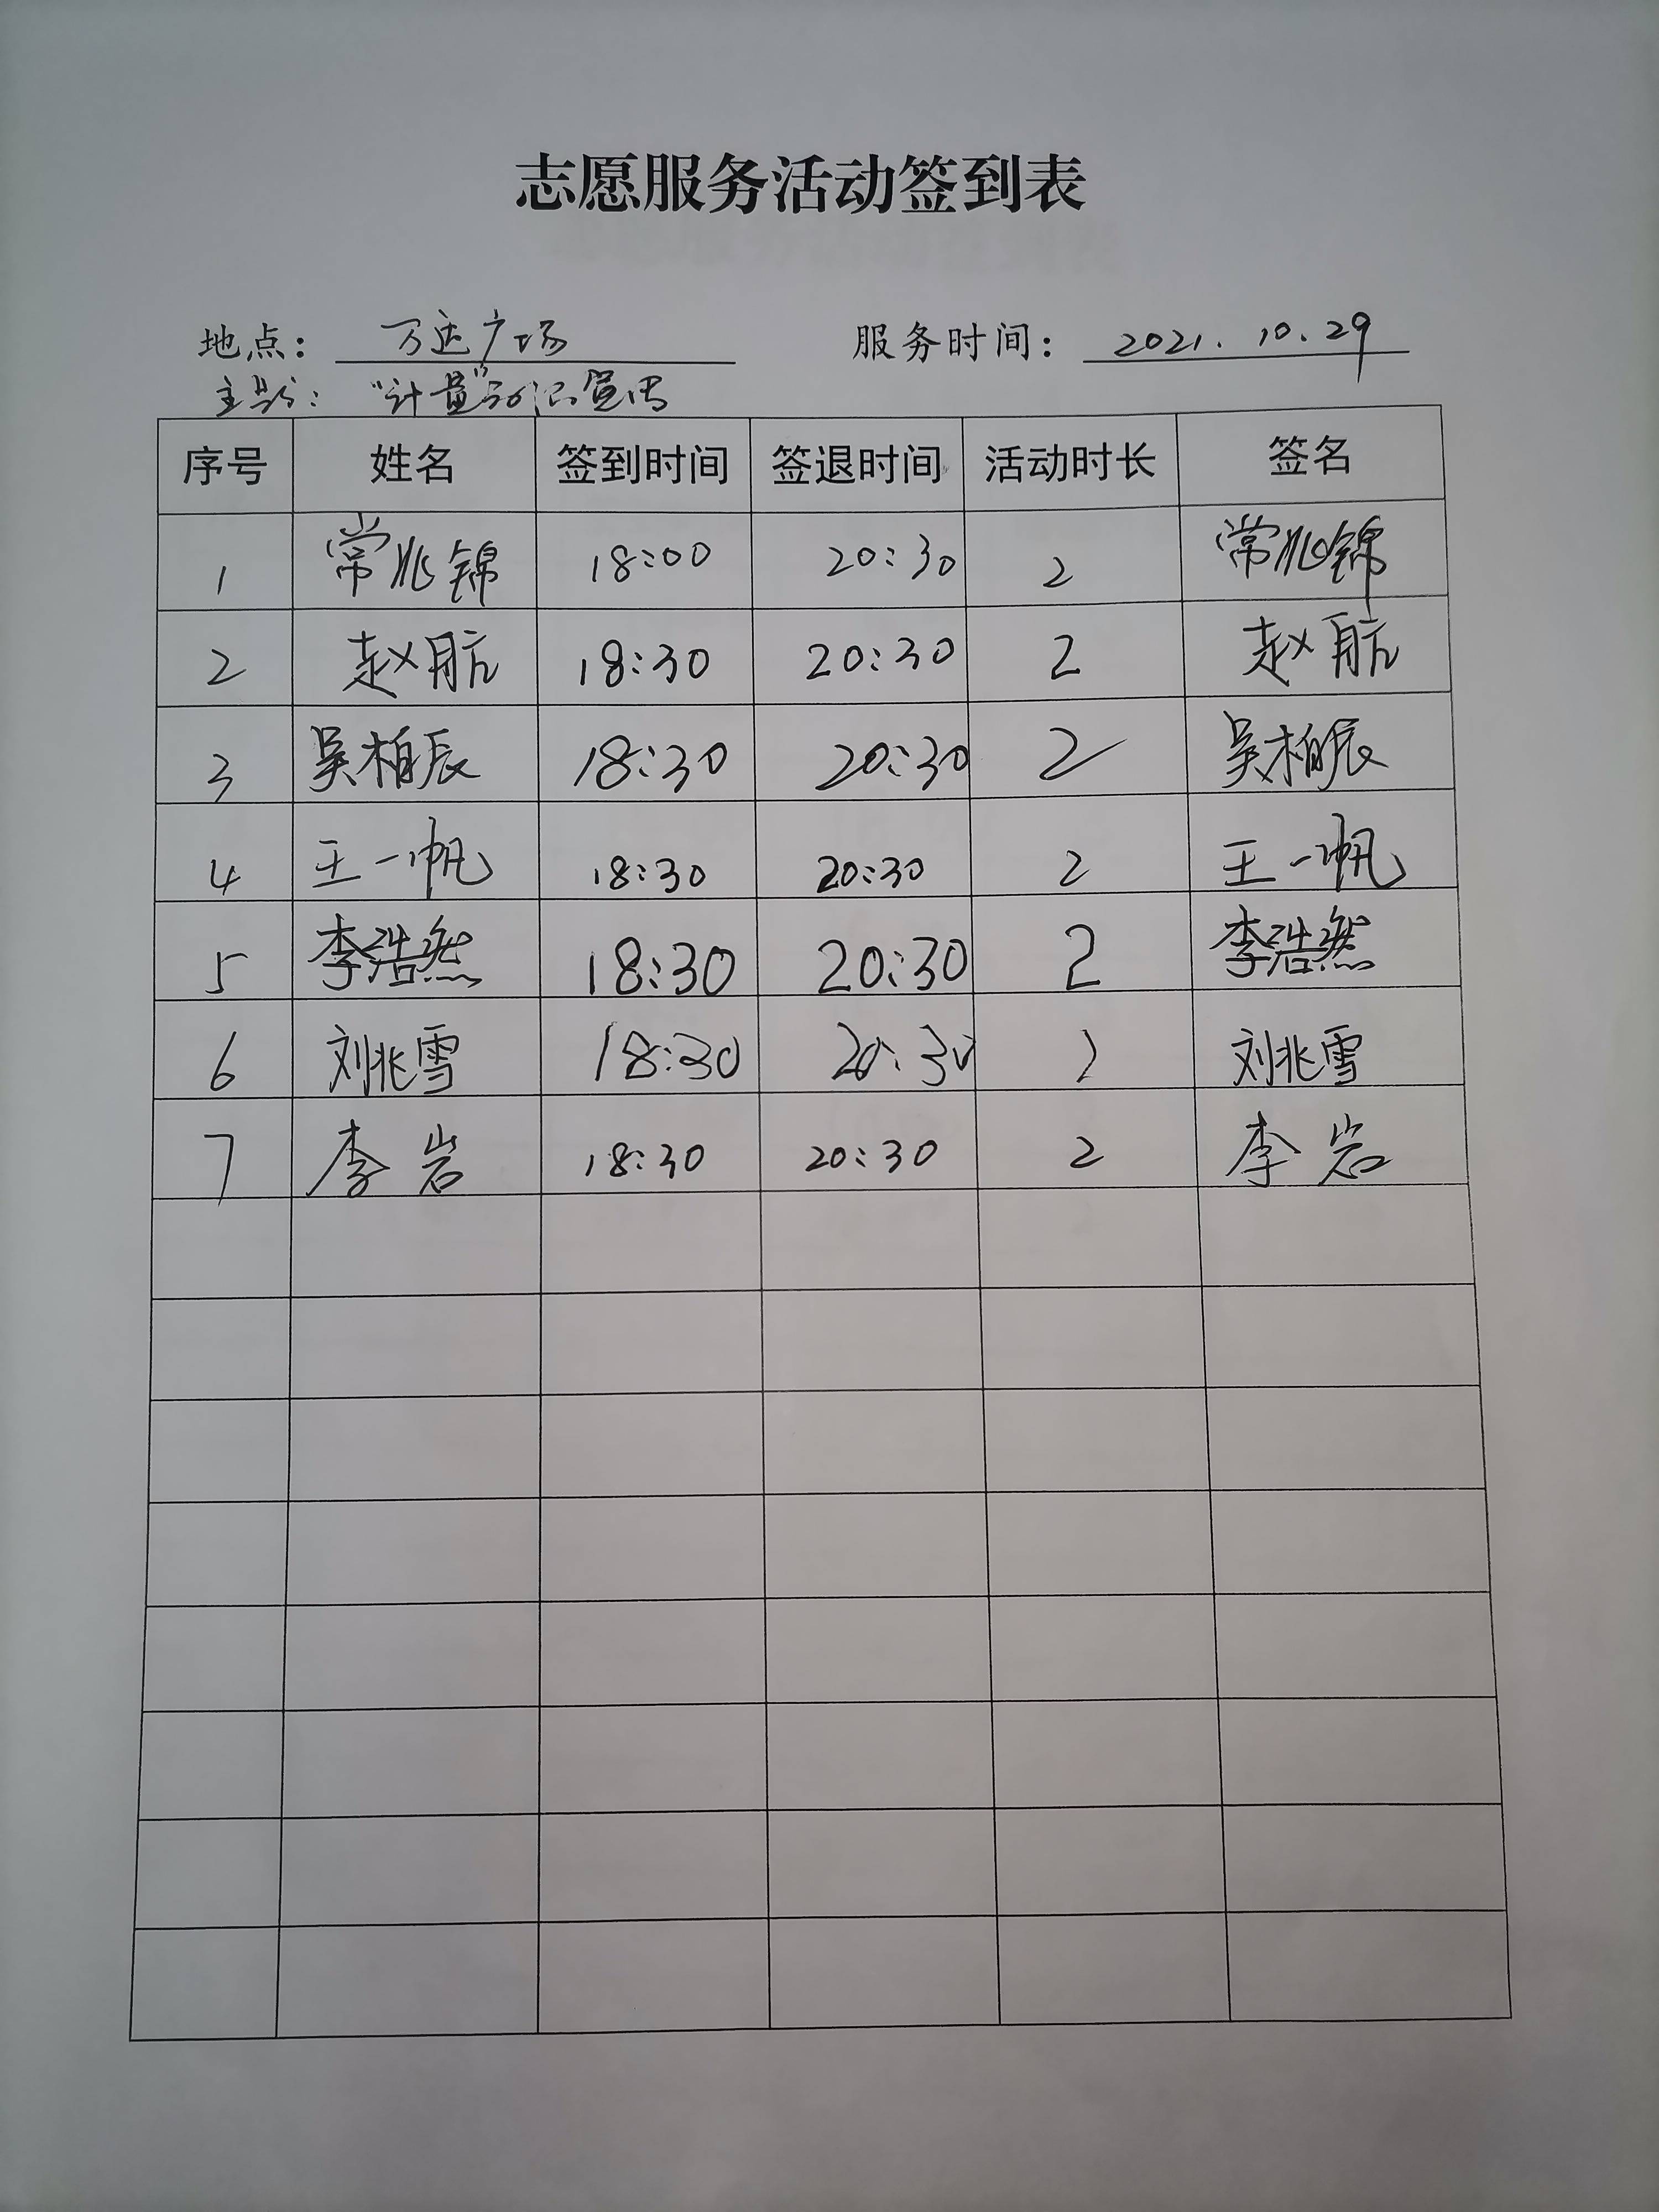 志愿服务活动签到表
地点： 万达广场 服务时间： 2021.10.29
主题： "计量"知识宣传
序号 姓名 签到时间 签退时间 活动时长 签名
1 常兆锦 18:00 20:30 2 常兆锦
2 赵航 18:30 20:30 2 赵航
3 吴柏辰 18:30 20:30 2 吴柏辰
4 王一帆 18:30 20:30 2 王一帆
5 李浩然 18:30 20:30 2 李浩然
6 刘兆雪 18:30 20:30 2 刘兆雪
7 李岩 18:30 20:30 2 李岩